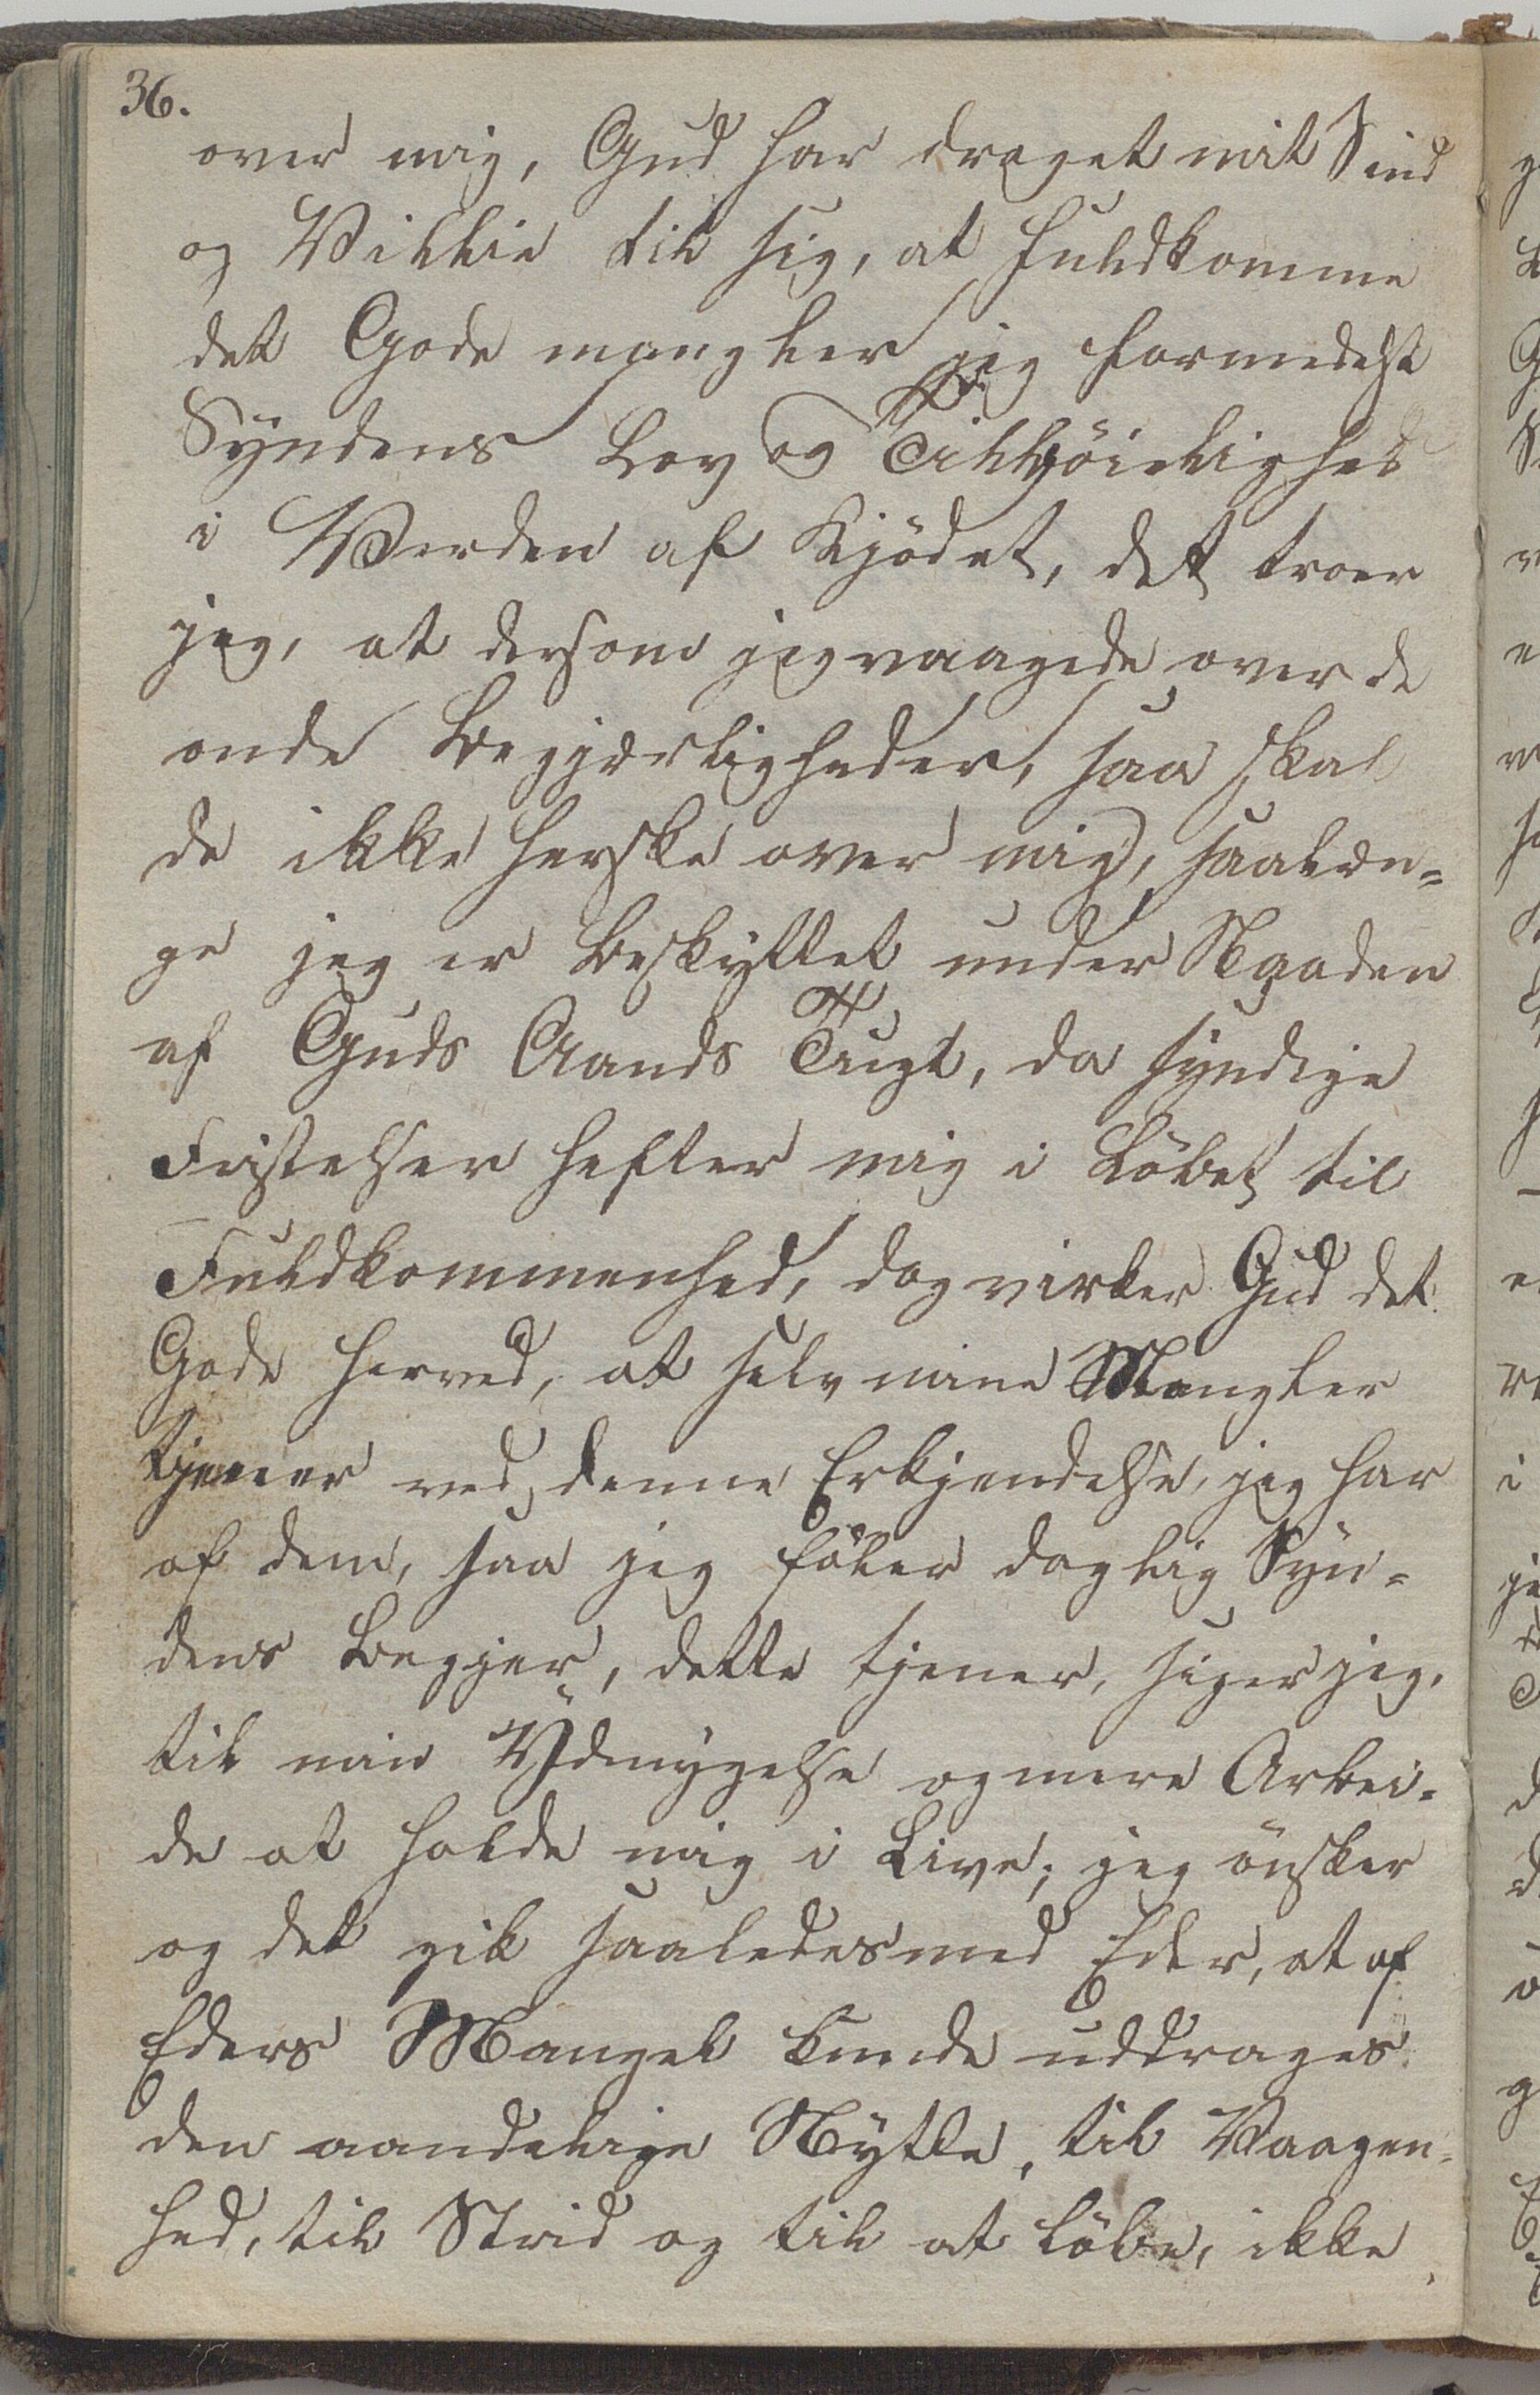 36.
over mig, Gud har draget mit Sind
og Villie til sig, at fuldkomme
det Gode mangler jeg formedelst
Syndens Lov og Tilbøielighed
i Verden af Kjødet, det troer
jeg, at dersom jeg vaagede over de
onde Begjærligheder, saa skal
de ikke herske over mig, saalæn=
ge jeg er beskyttet under Naaden
af Guds Aands Tugt, da syndige
Fristelser hefter mig i Løbet til
Fuldkommenhed, dog virker Gud det
Gode herved, at selv mine Mangler
tjener ved denne Erkjendelse, jeg har
af dem, saa jeg føler daglig Syn=
dens Begjer, dette tjener, siger jeg,
til min Ydmygelse og mere Arbei=
de at holde mig i Live; jeg ønsker
og det gik saaledes med Eder, at af
Eders Mangel kunde uddrages
den aandelige Nytte, til Vaagen=
hed, til Strid og til at løbe, ikke